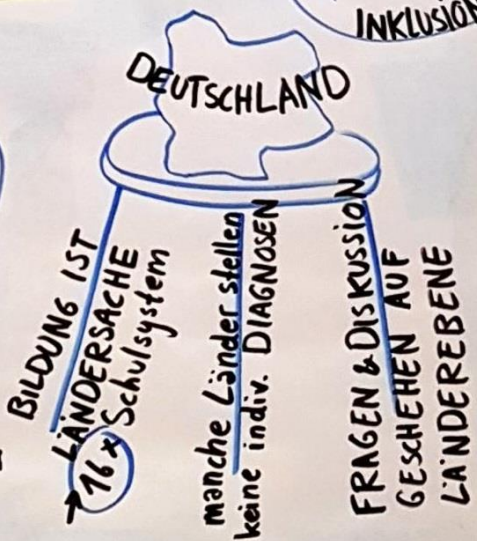 INKLUSION
DEUTSCHLAND
BILDUNG IST
LÄNDERSACHE
→ 16x Schulsystem
manche Länder stellen
keine indiv. DIAGNOSEN
FRAGEN & DISKUSSION
GESCHEHEN AUF
LÄNDEREBENE